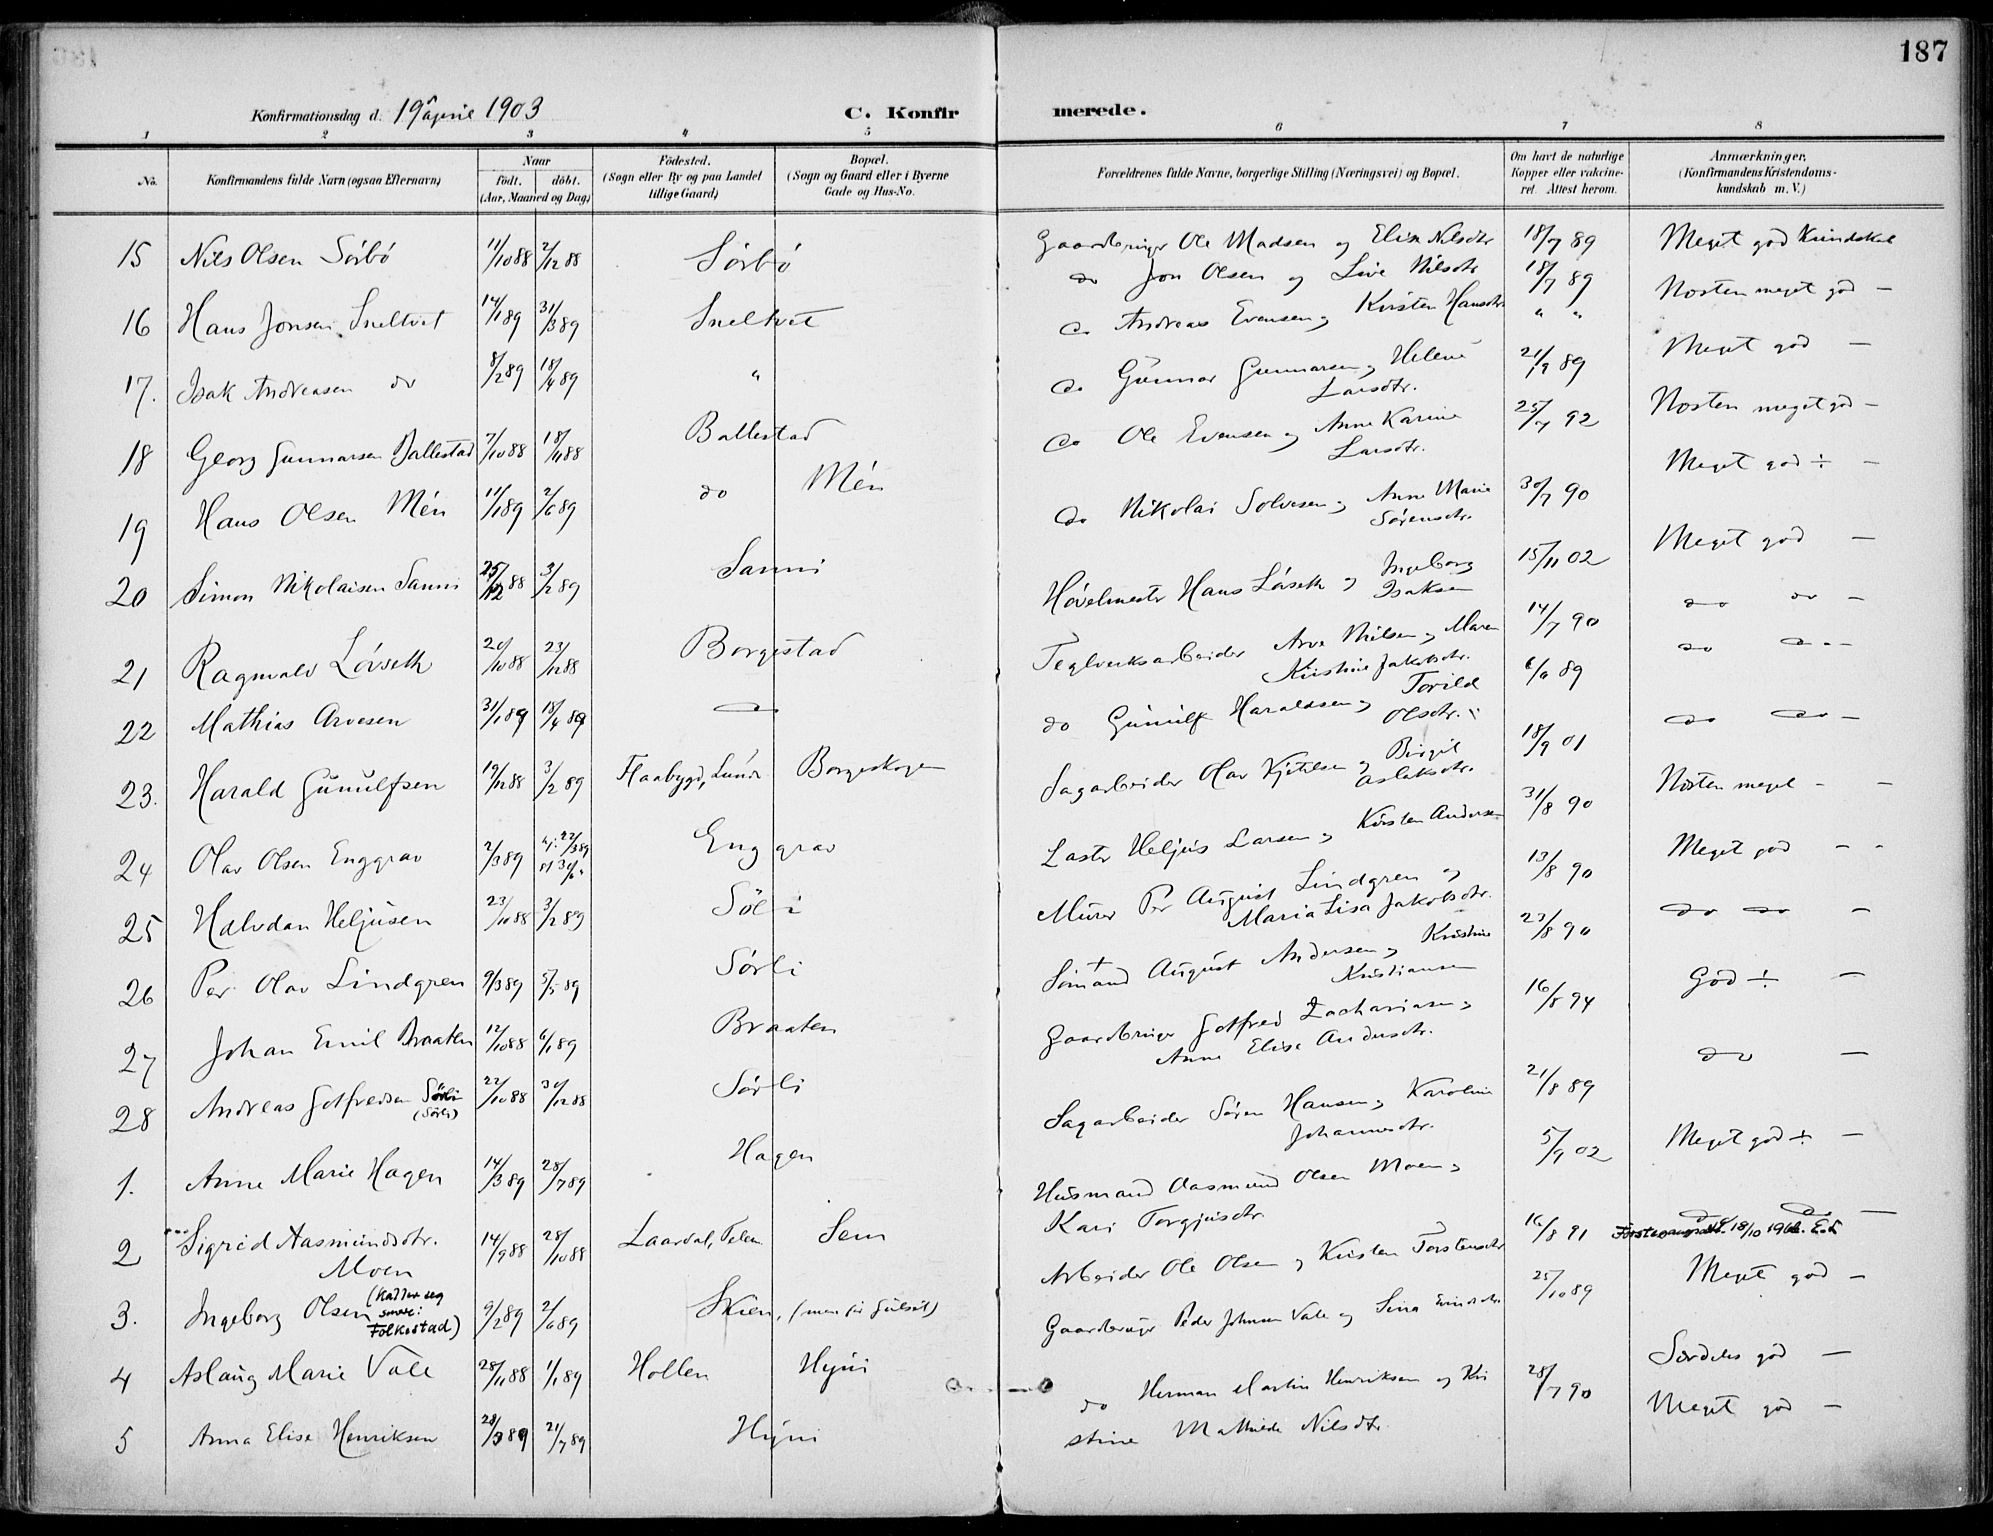 187
Konfirmationsdag d. 19 april 1903 C. Konfirmerede.
1 2 3 4 5 6 7 8
No. Konfirmandens fulde Navn (ogsaa Efternavn) Naar födt. döbt. (Aar, Maaned og Dag) Födested. (Sogn eller By og paa Landet tillige Gaard) Bopæl. (Sogn og Gaard eller i Byerne Gade og Hus-No. Forældrenes fulde Navne, borgerlige Stilling (Næringsvei) og Bopæl. Om havt de naturlige Kopper eller vakcineret. Attest herom. Anmærkninger, (Konfirmandens Kristendomskundskab m. V.)
15 Nils Olsen Sörbö 11/10 88 2/12 88 Sörbö Gaardbruger Ole Madsen og Elise Nilsdtr 18/7 89 Meget god Kundskab
16 Hans Jonsen Sneltvet 14/1 89 31/3 89 Sneltvet do Jon Olsen og Live Nilsdtr 18/7 89 Nesten meget god —
17. Isak Andreasen do 8/2 89 18/4 89 " do Andreas Evensen og Kirsten Hansdtr " " Meget god —
18 Georg Gunnarsen Ballestad 7/10 88 18/11 88 Ballestad do Gunnar Gunnarsen og Helene Larsdtr. 21/9 89 Nesten meget god —
19 Hans Olsen Mén 11/1 89 2/6 89 do Mén do Ole Evensen og Anne Karine Larsdtr. 25/7 92 Meget god ÷ —
20 Simon Nikolaisen Sanni 25/12 88 3/2 89 Sanni do Nikolai Solvesen og Anne Marie Sörensdtr. 30/7 90 Meget god —
21 Ragnvald Lövseth 20/10 88 23/12 88 Borgestad Hövelmester Hans Lövseth og Ingeborg Isaksen 15/11 02 do do —
22 Mathias Arvesen 31/1 89 18/4 89 do Teglverksarbeider Arve Nielsen og Maren Kristine Jakobsdtr. 14/7 90 do do —
23. Harald Gunulfsen 19/12 88 3/2 89 Flaabygd, Lunde Borgeskogen do Gunulf Haraldsen og Torild Olsdtr. 6/6 89 do do —
24 Olav Olsen Enggrav 2/3 89 Enggrav Sagarbeider Olav Kjetilsen og Birgit Aslaksdtr. 18/9 01 Nesten meget - —
25 Halvdan Heljusen 23/10 88 3/2 89 Söli Laster Heljus Larsen og Kirsten Andersen 31/8 90 Meget god - -
26 Per Olav Lindgren 9/3 89 5/5 89 Sörli Murer Per August Lindgren og Maria Lisa Jakobsdtr. 13/8 90 do do —
27 Johan Emil Braaten 12/10 88 6/1 89 Braaten Sömand August Andersen og Kristine Kristiansen 23/8 90 God ÷ —
28 Andreas Gotfredsen Sörli (Sörli) 22/10 88 30/12 88 Sörli Gaardbruger Gotfred Zachariasen og Anne Elise Andersdtr. 16/8 94 do —
1. Anne Marie Hagen 14/3 89 28/7 89 Hagen Sagarbeider Sören Hansen og Karoline Johannesdtr. 21/8 89 Meget god ÷ —
2 Sigrid Aasmundsdtr. Moen 14/9 88 28/10 88 Laardal, Telem. Sem Husmand Aasmund Olsen Moen og Kari Torgjusdtr 5/9 02 do do —
3. Ingeborg Olsen (kaller seg senere: Folkestad) 9/2 89 2/6 89 Skien, Arbeider Ole Olsen og Kirsten Torstensdtr 16/8 91 18/10 Meget god —
4 Aslaug Marie Vale 28/11 88 1/1 89 Hollen Hyni Gaardbruger Peder Johnsen Vale og 25/10 89 Særdeles god —
5 Anna Elise Henriksen 28/3 89 21/7 89 Hyni do Herman Martin Henriksen og Kristine Mathilde Nilsdtr. 28/7 90 Meget god —